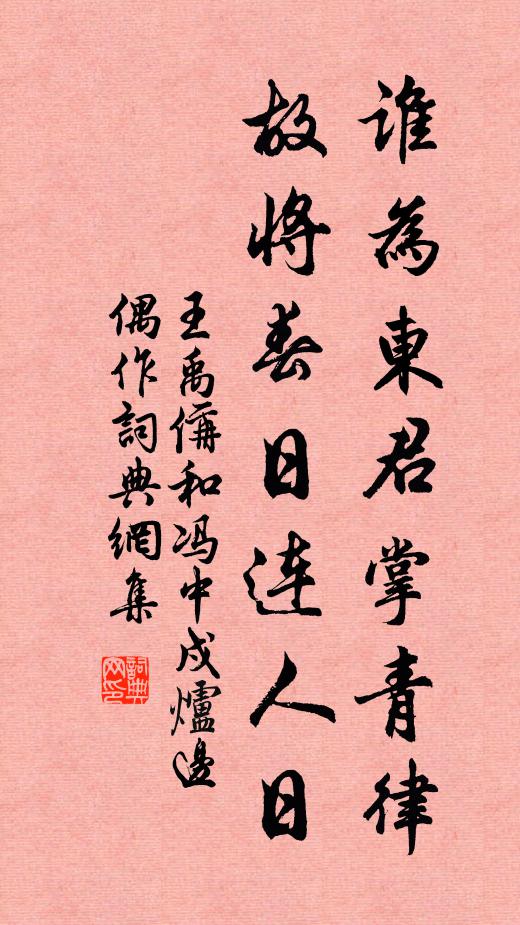 誰為東君掌青律
故將春日連人日
王禹偁和冯中戍爐邊
偶作詞典網集
詞典网印